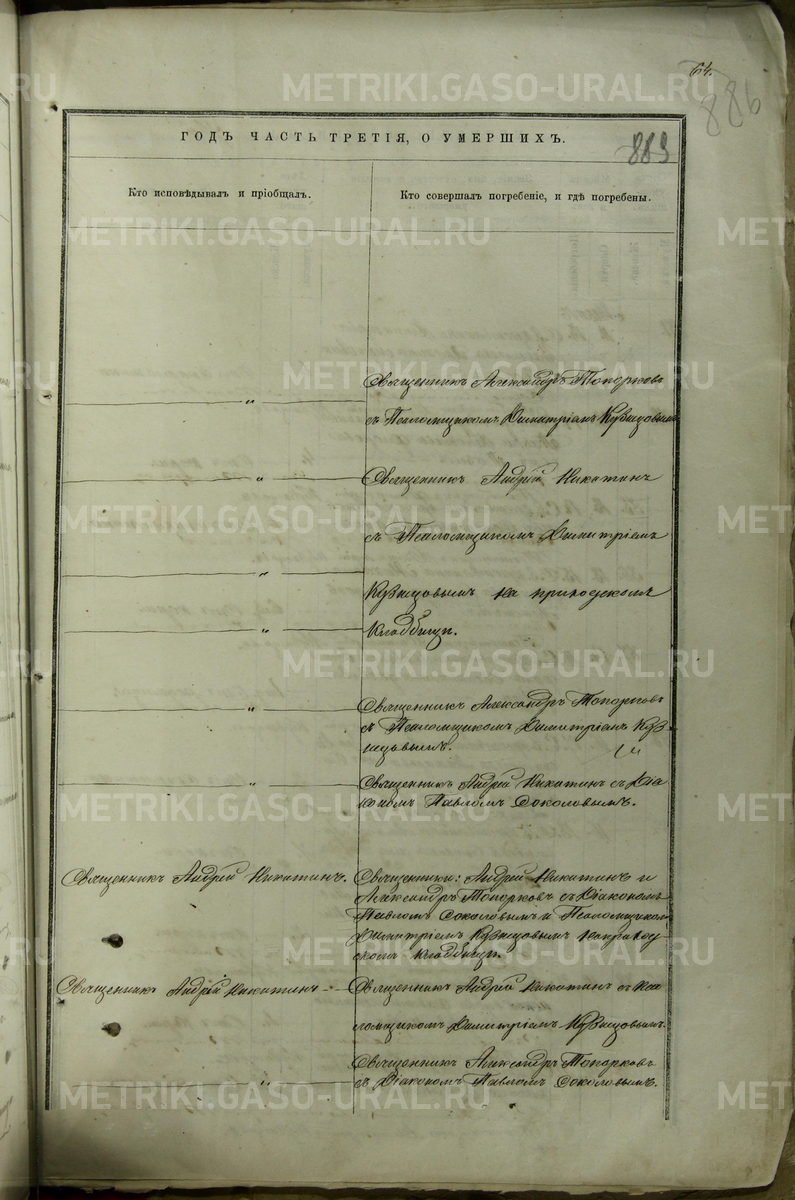 64.
886
883
ГОДЪ ЧАСТЬ ТРЕТІЯ, О УМЕРШИХЪ.
Кто исповѣдывалъ и пріобщалъ.
Кто совершалъ погребеніе, и гдѣ погребены.
Священникъ Александръ Топорковъ
съ Псаломщикомъ Димитріемъ Кузнецовымъ
Священникъ Андрей Никитинъ
съ Псаломщикомъ Димитріемъ
Кузнецовымъ на приходскомъ
кладбищѣ.
Священникъ Александръ Топорковъ
съ Псаломщикомъ Димитріемъ Куз
нецовымъ.
Священникъ Андрей Никитинъ съ Діа
кономъ Павломъ Соколовымъ.
Священникъ Андрей Никитинъ.
Священники: Андрей Никитинъ и
Александръ Топорковъ съ Діакономъ
Павломъ Соколовымъ и Псаломщикомъ
Димитріемъ Кузнецовымъ на приход
скомъ кладбищѣ.
Священникъ Андрей Никитинъ
Священникъ Андрей Никитинъ съ Пса
ломщикомъ Димитріемъ Кузнецовымъ.
Священникъ Александръ Топорковъ
съ Діакономъ Павломъ Соколовымъ.
METRIKI.GASO-URAL.RU